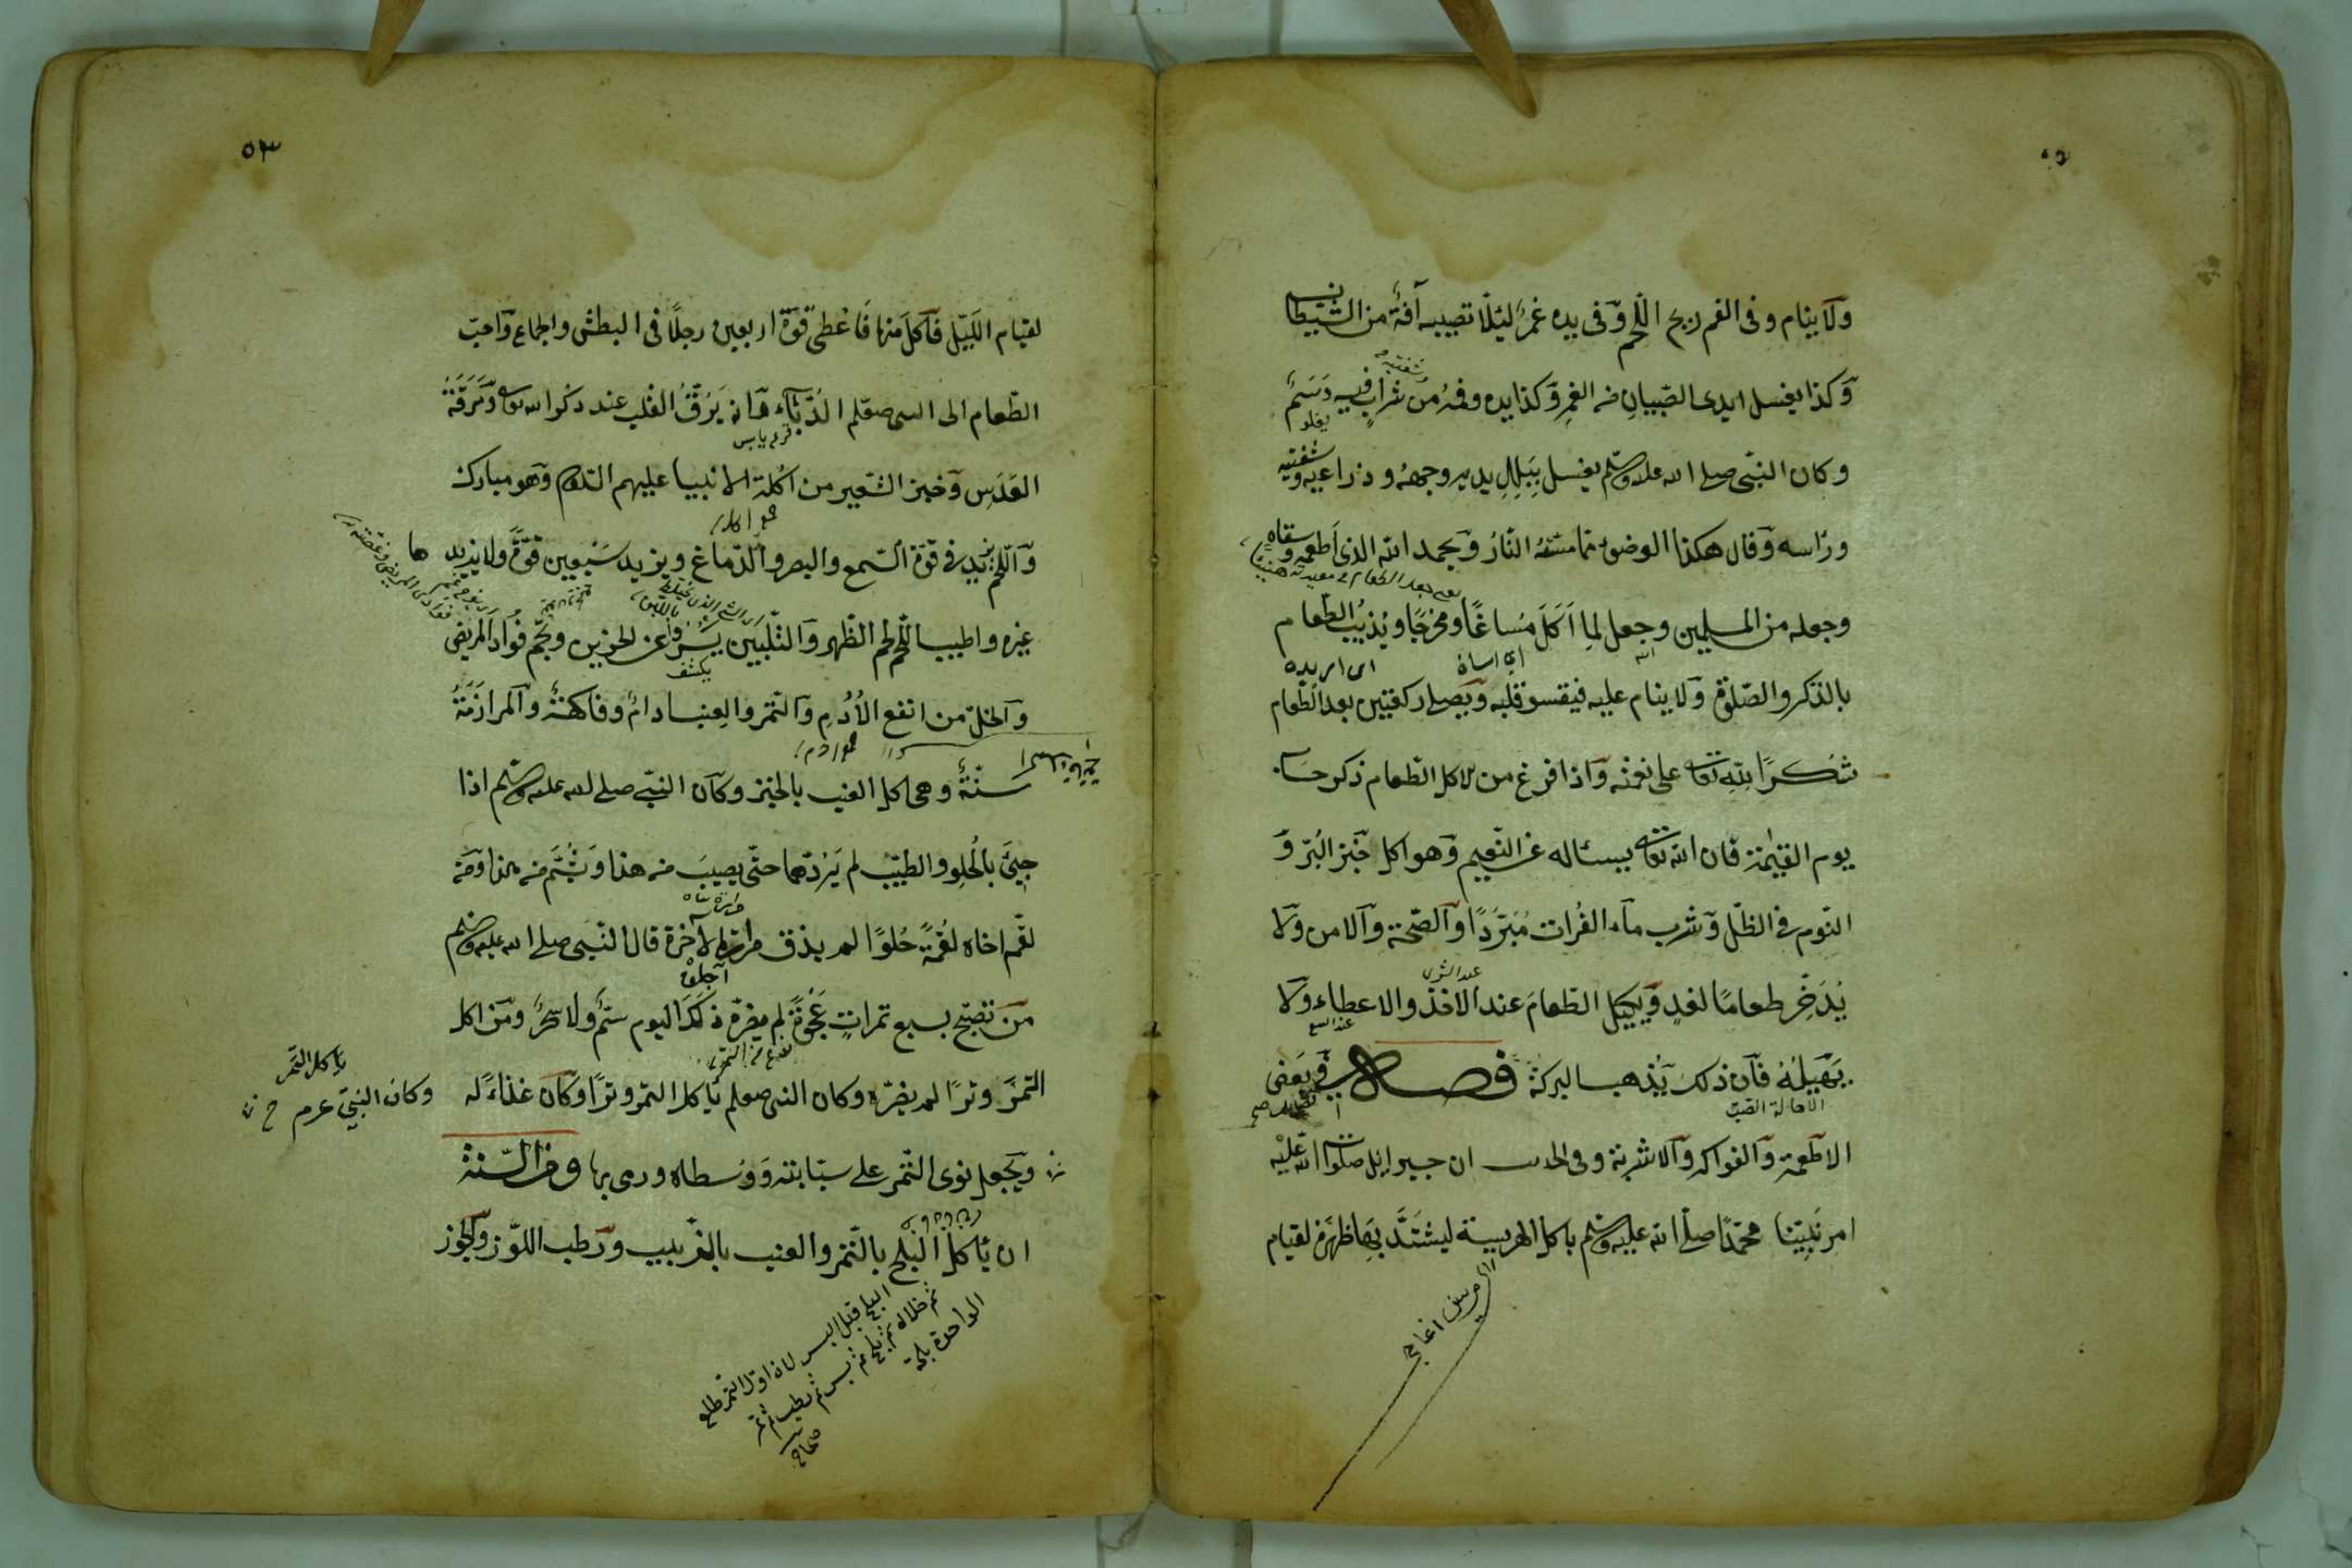 ولا ينام وفى الفم ريح اللحم وفى يده غمر لئلا تصيبه آفة من الشيطان
وكذا يغسل ايدى الصبيان من الغمر وكذا يده وفمه من شراب فيه دسم
شفتيه
وكان النبى صلى الله عليه وسلم يغسل ببلل يديه وجهه وذراعيه وشفتيه
وراسه وقال هكذا الوضوء مما مسته النار ويحمد الله الذى اطعمه وسقاه
وجعله من المسلمين وجعل لما اكل مساغا ومخرجا ويذيب الطعام
بالذكر والصلوة ولا ينام عليه فيقسو قلبه ويصلى ركعتين بعد الطعام
شكرا لله تعالى على نعمه واذا فرغ من اكل الطعام ذكر حساب
يوم القيمة فان الله تعالى يسئاله عن النعيم وهو اكل خبز البر و
النوم فى الظل وشرب ماء الفرات مبردا والصحة والامن ولا
يدخر طعاما لغد ويكيل الطعام عند الاخذ والاعطاء ولا
عند الشرى
عند البيع
يهيله فان ذلك يذهب البركة فصل فى بعض
الاهالة الصب
الاطعمة والفواكه والاشربة وفى الحديث ان جبرائيل صلوات الله عليه
امر نبينا محمدا صلى الله عليه وسلم باكل الهريسة ليشتد بها ظهره لقيام
٥٣
لقيام الليل فاكل منها فاعطى قوة اربعين رجلا فى البطش والجماع واحب
الطعام الى النبى صلعم الدباء فانه يرق القلب عند ذكر الله تعالى ومرقة
قرع يابس
العدس وخبز الشعير من اكلة الانبيا عليهم السلام وهو مبارك
واللحم يزيد فى قوة السمع والبصر والدماغ ويزيد سبعين قوة ولا يزيدها
غيره واطيب اللحم لحم الظهر والتلبين يسرو عن الحزين ويجم فؤاد المريض
يكشف
والخل من انفع الادم والتمر والعنب ادام وفاكهة والمرازمة
سنة وهى اكل العنب بالخبز وكان النبى صلى الله عليه وسلم اذا
جيئ بالحلو والطيب لم يردهما حتى يصيب من هذا ويشم من هذا ومن
لقم اخاه لقمة حلوا لم يذق مرارة الاخرة قال النبى صلى الله عليه وسلم
من تصبح بسبع تمرات عجوة لم يضره ذلك اليوم سم ولا سحر ومن اكل
نوع من التمر
التمر وترا لم يضره وكان النبى صلعم ياكل التمر وترا وكان غذاء له
وكان النبى عرم
ياكل التمر
ويجعل نوى التمر على سبابته ووسطاه ورمى بها ومن السنة
ان ياكل البلح بالتمر والعنب بالغربيب ورطب اللوز والجوز
البلح قبل البسر لان اول التمر طلع
ثم خلال ثم بلح ثم بسر ثم رطب ثم تمر
الواحدة بلحة
صحاح